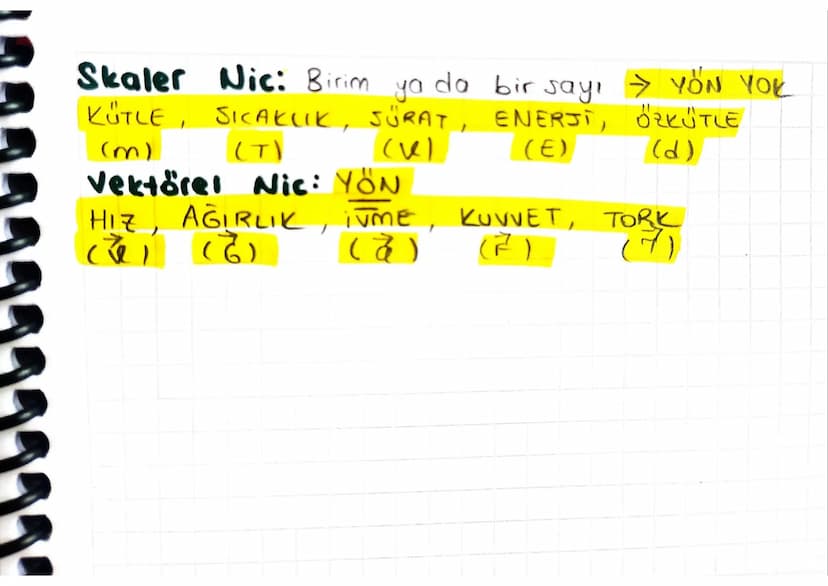 Skaler Nic: Birim ya da bir sayı → YÖN YOK
KÜTLE, SICAKLIK, SÜRAT, ENERJİ, ÖZKÜTLE
(m) (T) (v) (E) (d)
Vektörel Nic: YÖN
HIZ, AĞIRLIK, İVME, KUVVET, TORK
(v⃗) (G⃗) (a⃗) (F⃗)